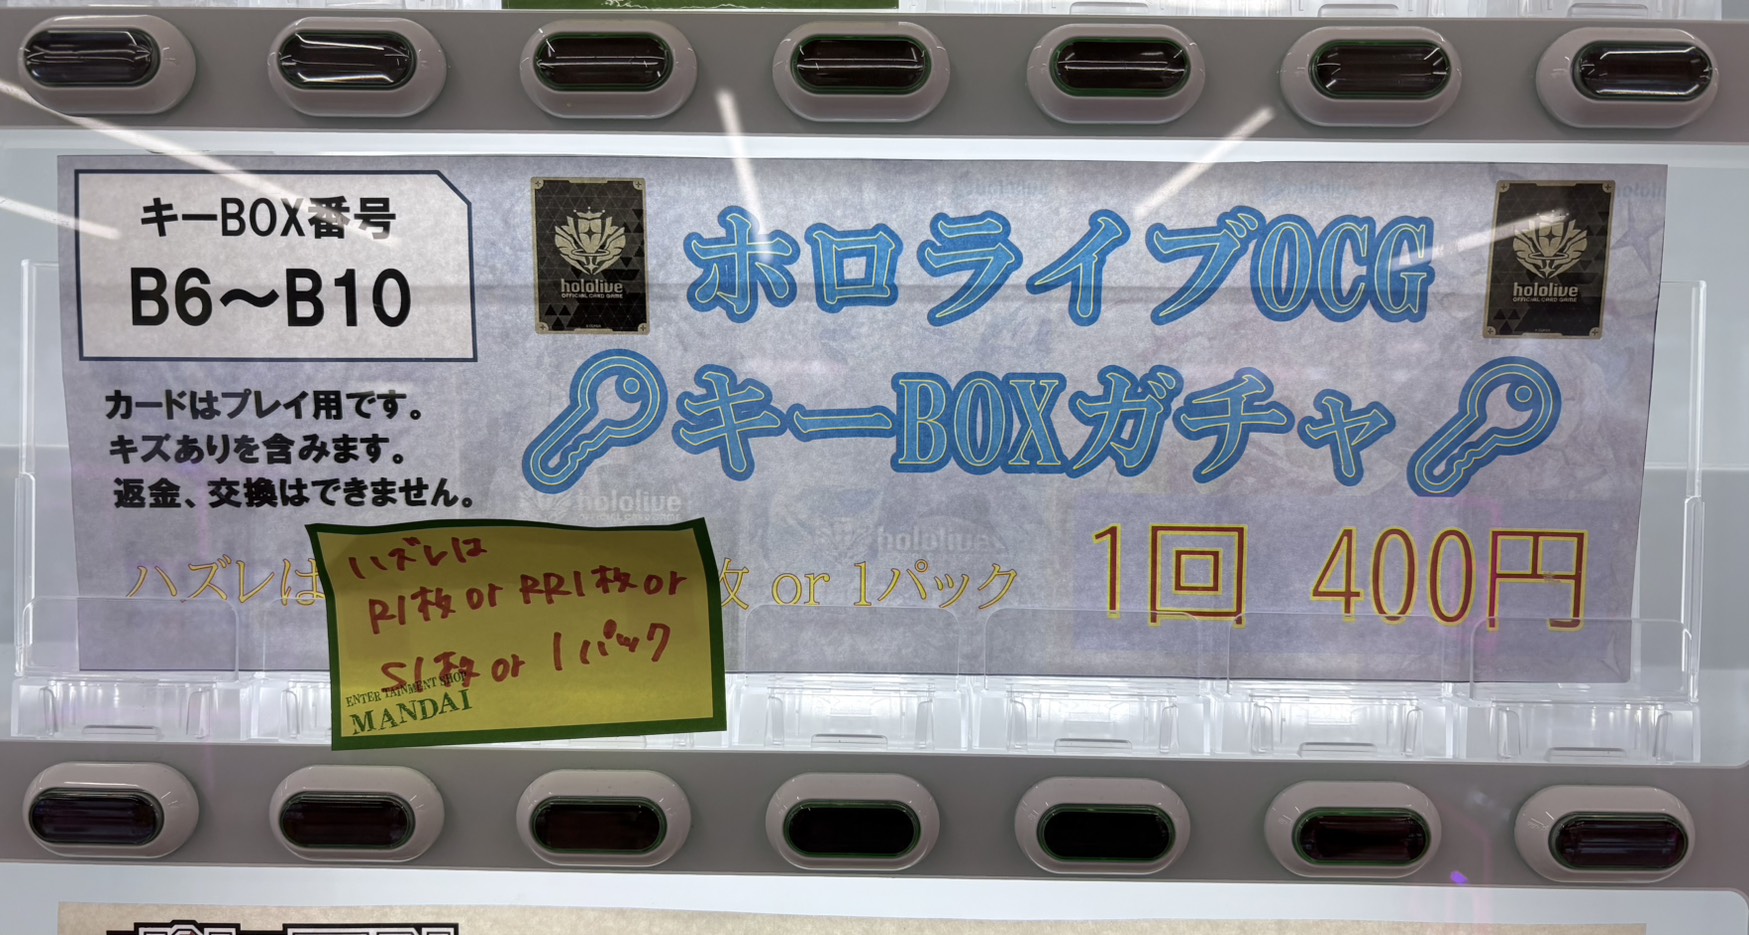 キーBOX番号
B6～B10
カードはプレイ用です。
キズありを含みます。
返金、交換はできません。
hololive
OFFICIAL CARD GAME
ホロライブOCG
hololive
OFFICIAL CARD GAME
キーBOXガチャ
hololive
hololive
ハズレは
枚 or 1パック
1回 400円
ハズレは
R1枚 or RR1枚 or
S1枚 or 1パック
ENTERTAINMENT SHOP
MANDAI